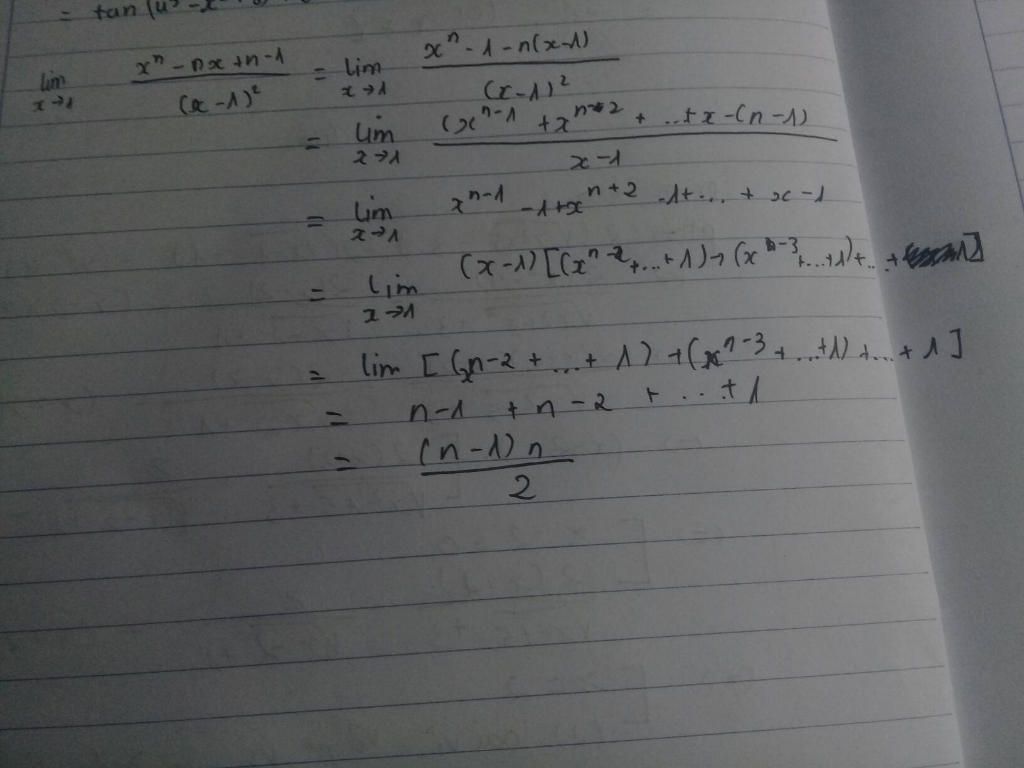 = tan(u³ - x
lim x→1 (xⁿ - nx + n - 1)/(x - 1)² = lim x→1 (xⁿ - 1 - n(x - 1))/(x - 1)²
= lim x→1 ((xⁿ⁻¹ + xⁿ⁻² + ... + x - (n - 1))/(x - 1)
= lim x→1 xⁿ⁻¹ - 1 + xⁿ⁺² - 1 + ... + x - 1
= lim x→1 (x - 1)[(xⁿ⁻² + ... + 1) + (xⁿ⁻³ + ... + 1) + ... + 1]
= lim [(xn-2 + ... + 1) + (xⁿ⁻³ + ... + 1) + ... + 1]
= n-1 + n-2 + ... + 1
= (n - 1)n/2